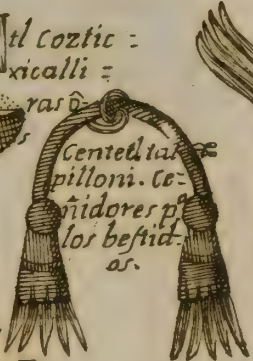 tl Coztic =
xicalli =
ras q̄-
s
Centetl tal
pilloni. Ce-
ñidores pª
los bestid-
os.